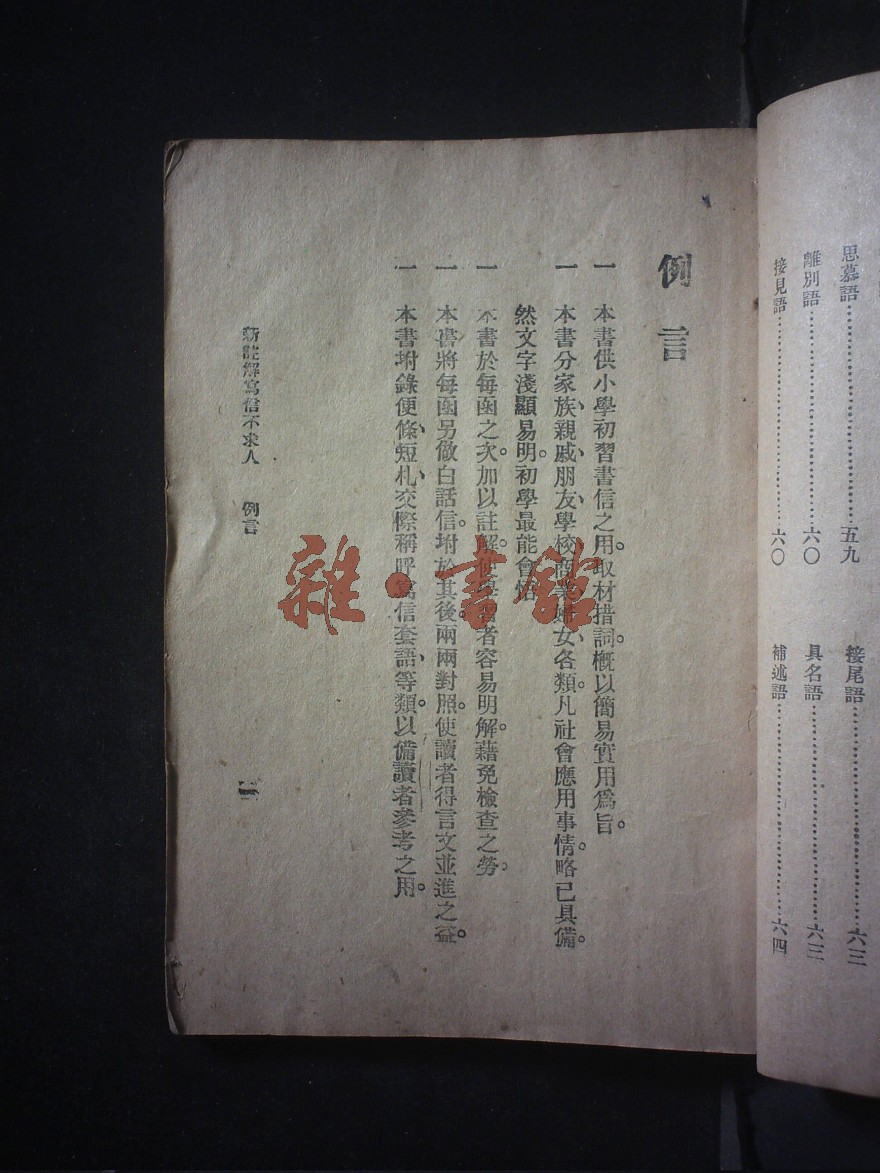 思慕語……………………五九
離別語……………………六〇
接見語……………………六〇
接尾語……………………六三
具名語……………………六三
補述語……………………六四
例言
一 本書供小學初習書信之用。取材措詞。概以簡易實用爲旨。
一 本書分家族、親戚、朋友、學校、商業、婦女、各類。凡社會應用事情。略已具備。
然文字淺顯易明。初學最能會悟。
一 本書於每函之次。加以註解。使學習者容易明解。藉免檢查之勞。
一 本書將每函另倣白話信。坿於其後。兩兩對照。使讀者得言文並進之益。
一 本書坿錄便條、短札、交際稱呼、寫信套語、等類。以備讀者參考之用。
新註解寫信不求人 例言
雜·書館